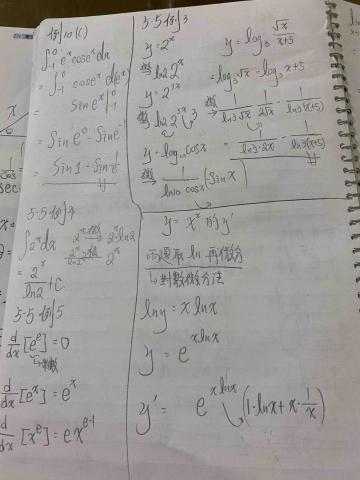 例10(C)
∫₋₁⁰ eˣ cos eˣ dx
= ∫₋₁⁰ cos eˣ d(eˣ)
= sin eˣ |₋₁⁰
= sin e⁰ - sin e⁻¹
= sin 1 - sin 1/e
5-5 例
∫ 2ˣ dx 2ˣ 微→ 2ˣ·ln2
2ˣ/ln2 2ˣ
= 2ˣ/ln2 + C
5-5 例5
d/dx [eᵉ] = 0
常數
d/dx [eˣ] = eˣ
d/dx [xᵉ] = e xᵉ⁻¹
5-5 例3
y = 2ˣ
微 ln2 2ˣ
y = 2³ˣ
微 ln2 2³ˣ · 3
y = log₁₀ cos x
微→ 1/(ln10 cos x) (sin x)
y = log₃ √x/(x+5)
= log₃ √x - log₃ x+5
微→ 1/(ln3 √x) · 1/(2√x) - 1/(ln3(x+5))
= 1/(ln3·2x) - 1/(ln3(x+5))
y = xˣ 的 y'
兩邊取 ln 再微分
↳對數微分法
ln y = x ln x
y = e^(x ln x)
y' = e^(x ln x) (1·ln x + x·1/x)